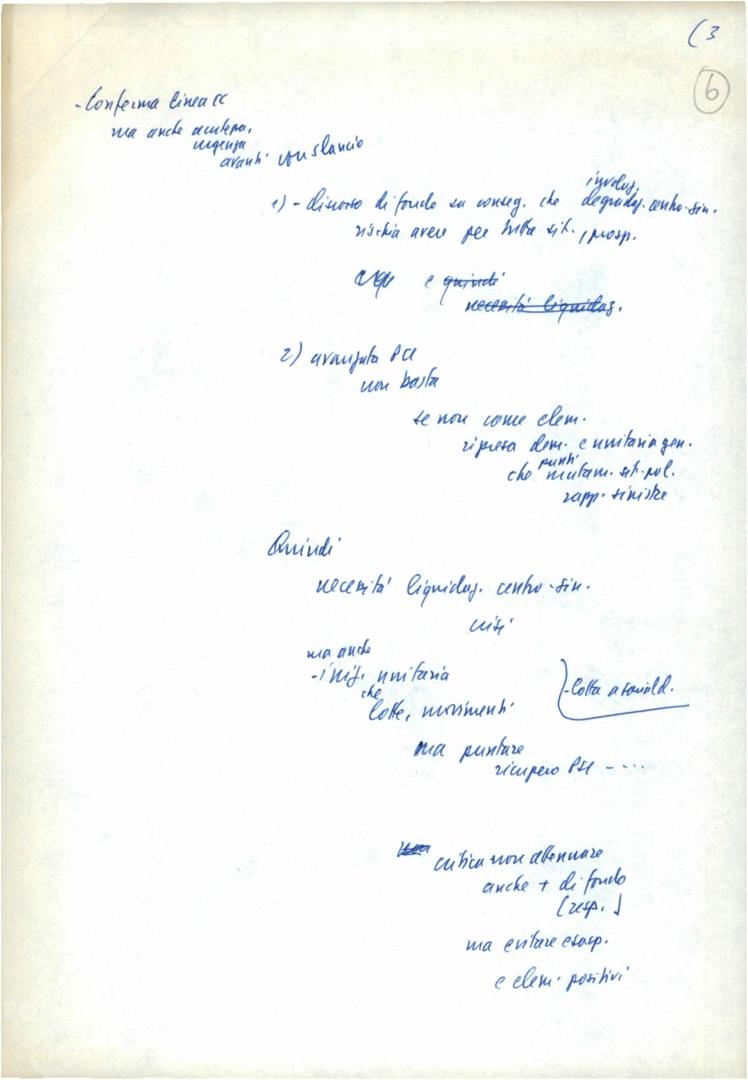 (3
6
- Conferma linea CC
ma anche acutezza,
urgenza
avanti con slancio
involuz.
1) - discorso di fondo su conseg. che degradaz. centro-sin.
rischia avere per tutta sit., prosp.
e quindi
necessità liquidaz.
2) avanzata PCI
non basta
se non come elem.
ripresa dem. e unitaria gen.
punti
che mutam. sit. pol.
rapp. sinistre
Quindi
necessità liquidaz. centro-sin.
crisi
ma anche
- iniz. unitaria
che
lotte, movimenti
- Lotta a sociald.
ma puntare
ricupero PSI - ...
critica non attenuare
anche + di fondo
[resp.]
ma evitare esasp.
e elem. positivi